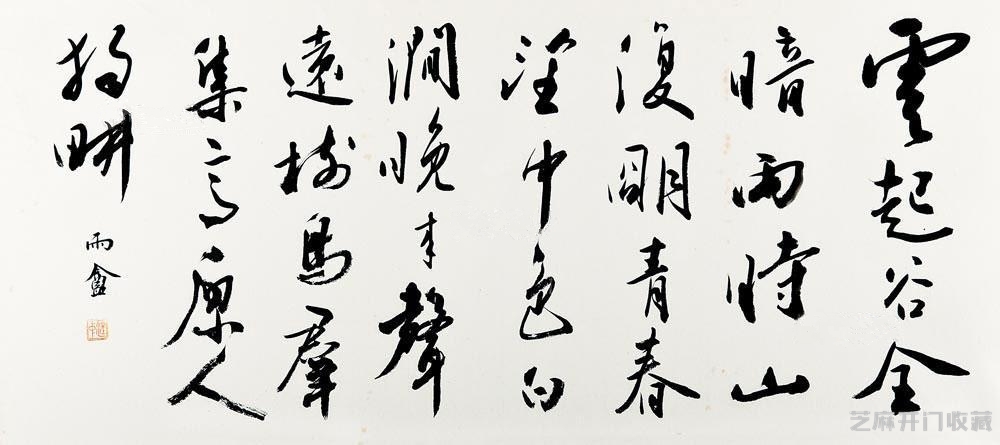 雲起谷全
暗雨時山
復明青春
望中色白
澗晚来聲
遠樹鳥羣
集高原人
獨耕
雨盦
芝麻开门收藏